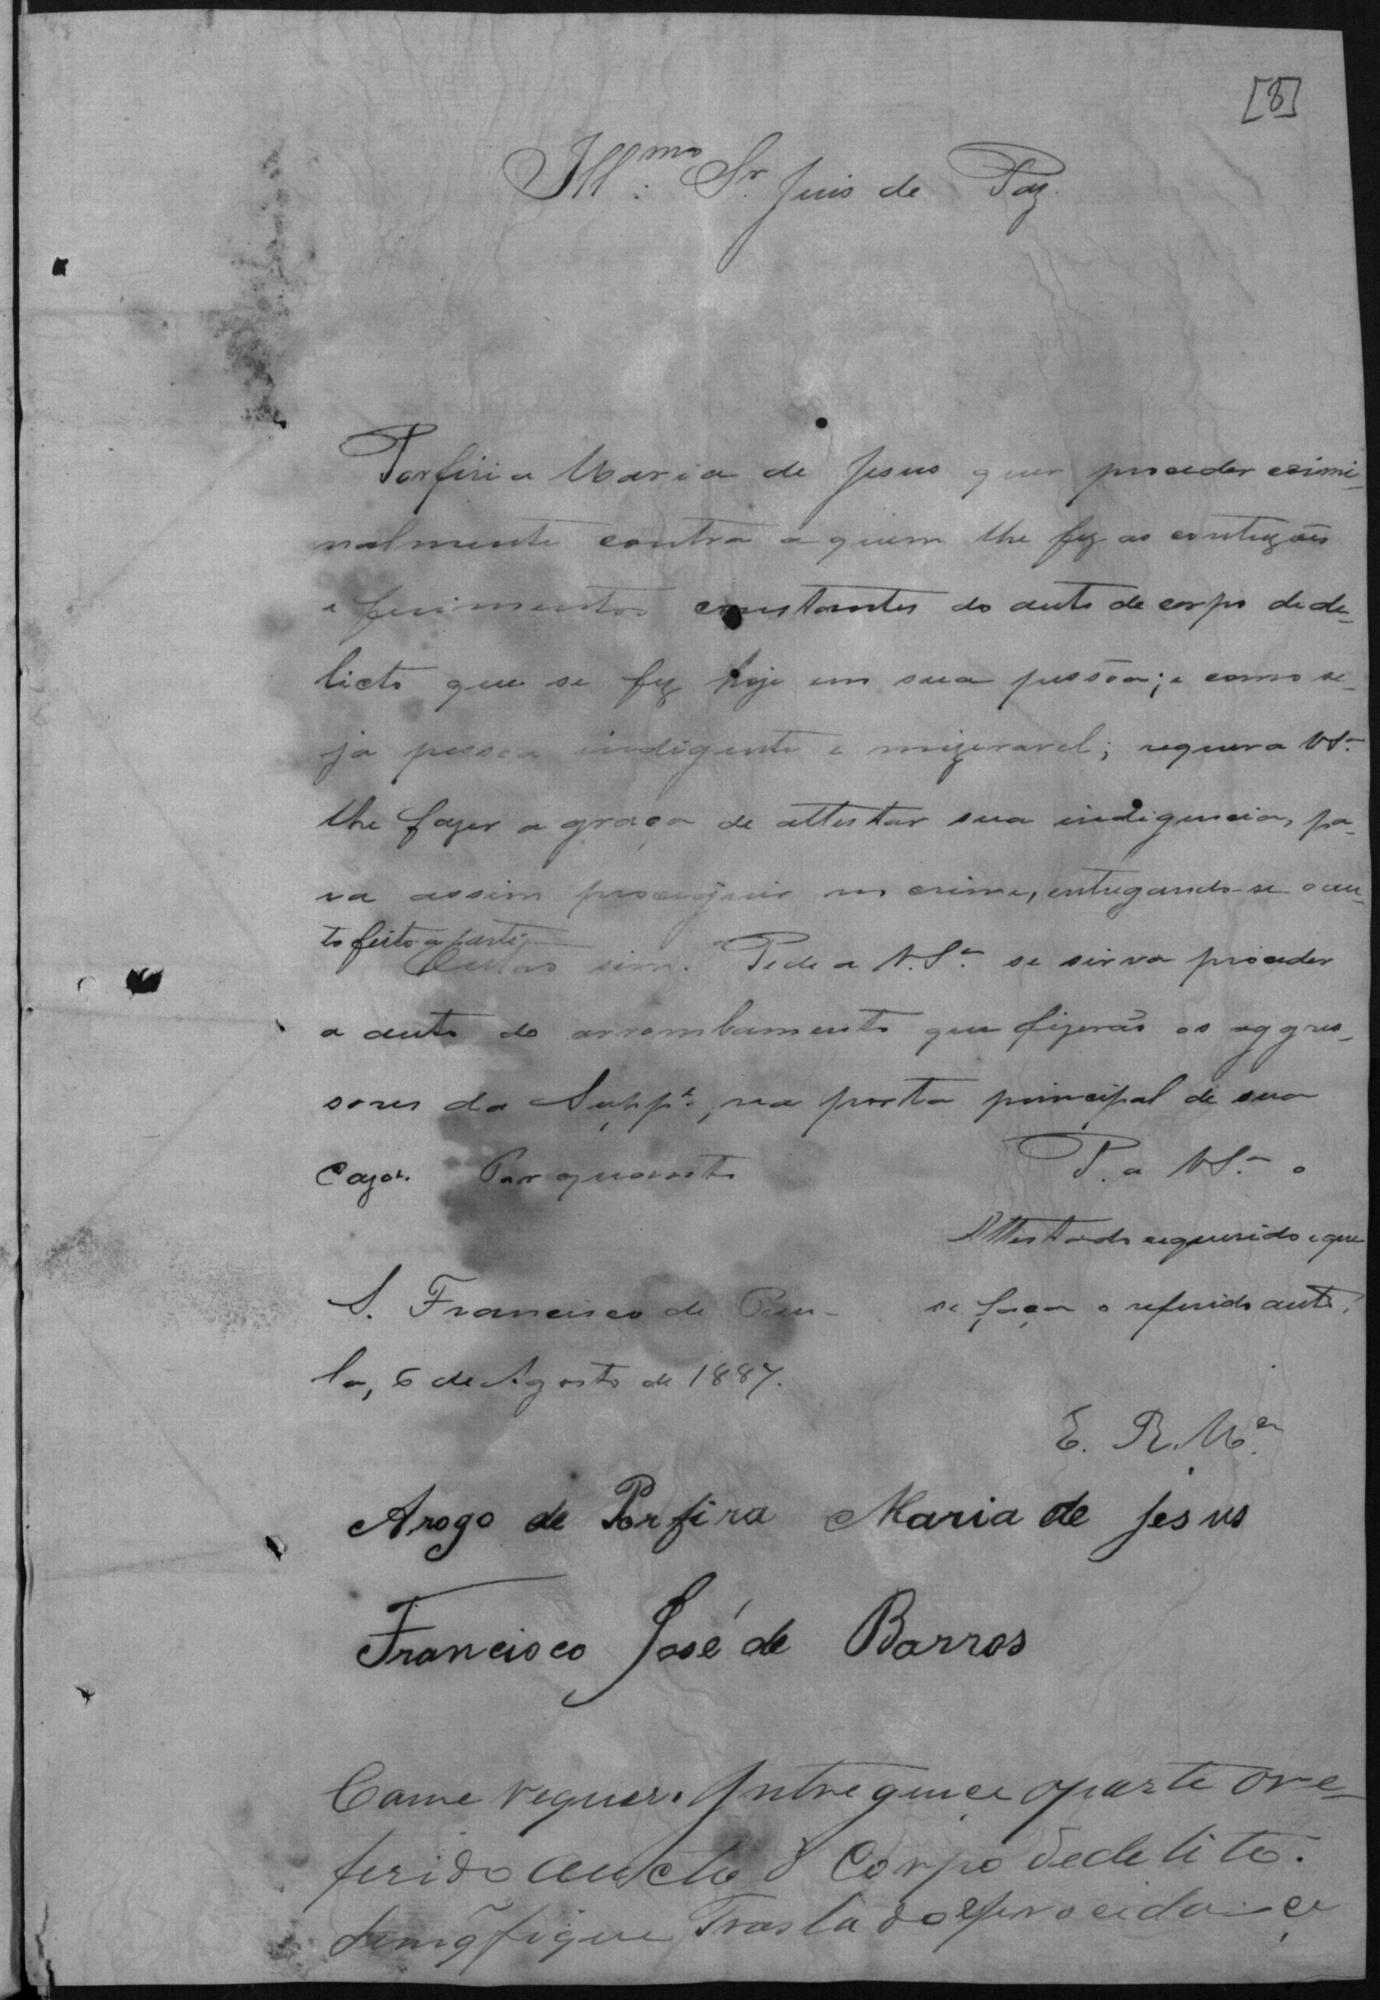 [8]
Ill.mo Sr. Juis de Paz.
Porfiria Maria de Jesus quer proceder crimi-
nalmente contra a quem lhe fez as contuzões
e ferimentos constantes do auto de corpo de de-
licto que se fez hoje em sua pessôa; e como se-
ja pessoa indigente e mizeravel; requer a V.S.a
lhe fazer a graça de attestar sua indigencia, pa-
ra assim proseguir no crime, entregando-se o au-
to feito a parte.
Outro sim. Pede a V.S.a se sirva proceder
a auto do arrombamento que fizerão os aggres-
sores da Supp.e, na porta principal de sua
caza. Por quanto
P. a V.S.a o
Attestado requerido e que
S. Francisco de Pau-
se faça o referido auto.
la, 6 de Agosto de 1887.
E. R. M.ce
Arogo de Porfira Maria de Jesus
Francisco José de Barros
Come requer. Intreguece aparte ore-
ferido aucto d Corpo dedelito.
fique Traslado eprocida-ce